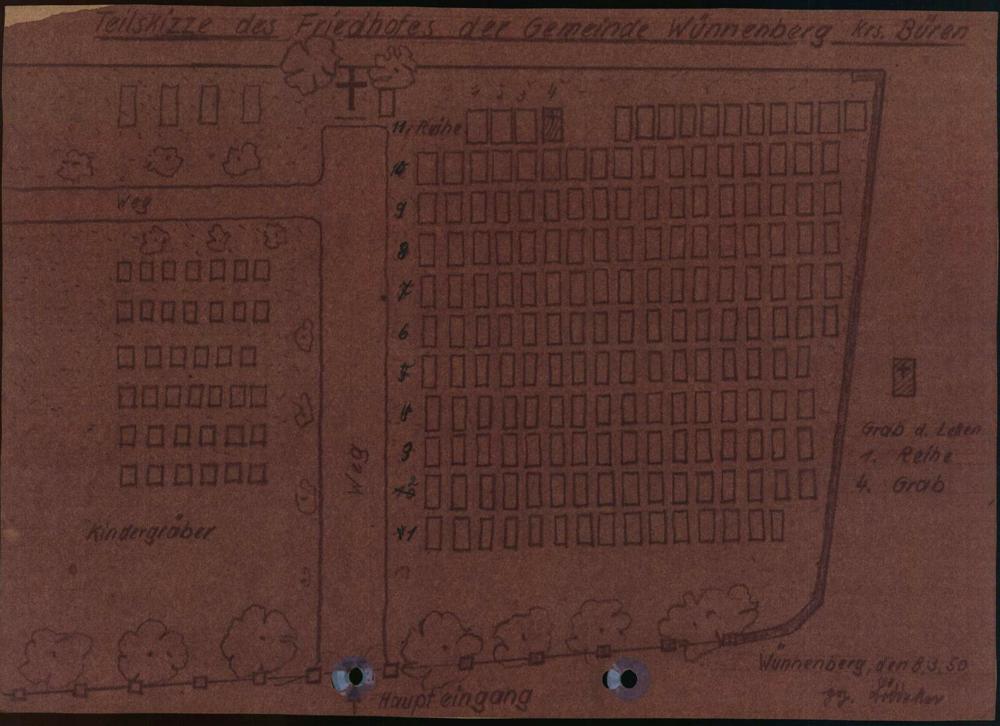 Teilskizze des Friedhofes der Gemeinde Wünnenberg Krs. Büren
1 2 3 4
11. Reihe
10
9
8
7
6
5
4
3
2
1
Weg
Weg
Kindergräber
Grab d. Letten
1. Reihe
4. Grab
Haupteingang
Wünnenberg, den 8.3.50
gez.